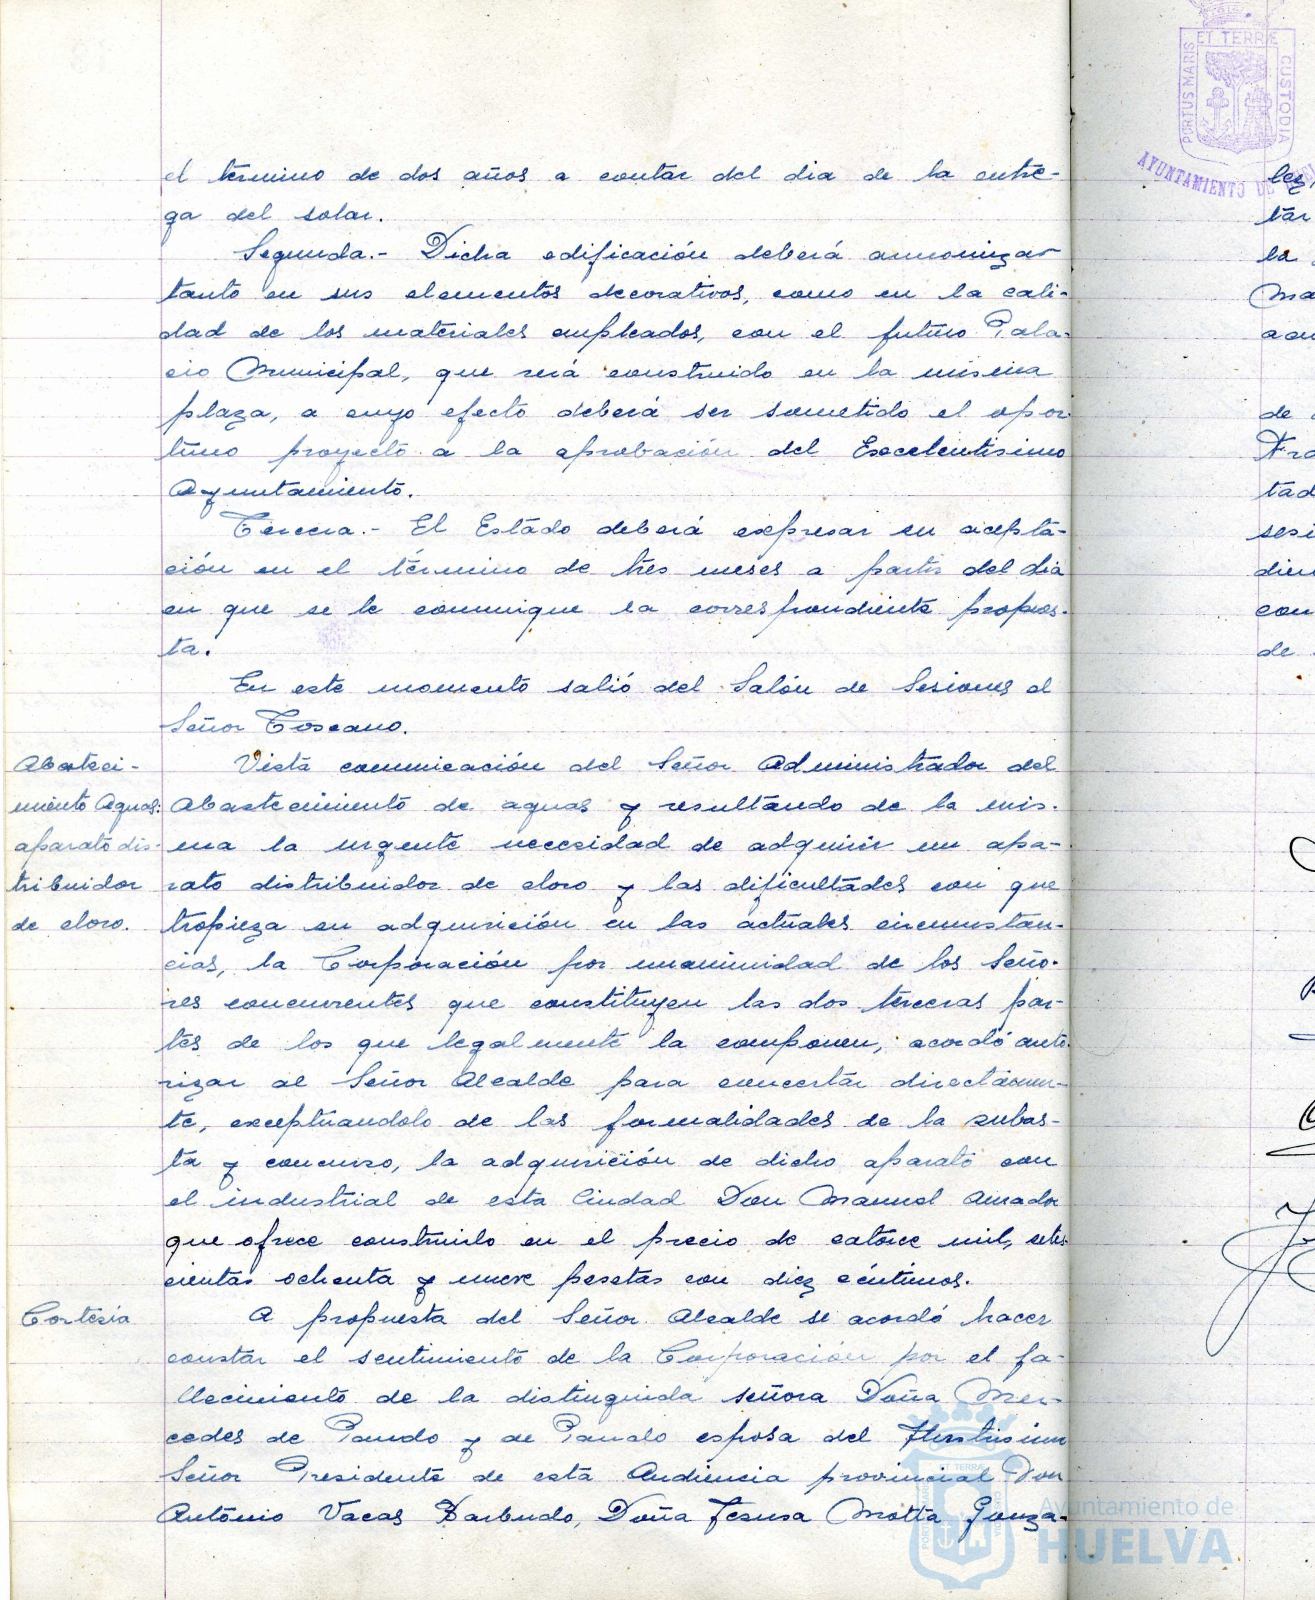 el término de dos años a contar del dia de la entre-
ga del solar.
Segunda.- Dicha edificación deberá armonizar
tanto en sus elementos decorativos, como en la cali-
dad de los materiales empleados, con el futuro Pala-
cio Municipal, que será construido en la misma
plaza, a cuyo efecto deberá ser sometido el opor
tuno proyecto a la aprobación del Excelentisimo
Ayuntamiento.
Tercera.- El Estado deberá expresar su acepta-
ción en el término de tres meses a partir del dia
en que se le comunique la correspondiente propues-
ta.
En este momento salió del Salón de Sesiones el
Señor Toscano.
Abasteci-
miento Aguas:
aparato dis-
tribuidor
de cloro.
Vista comunicación del Señor Administrador del
Abastecimiento de aguas y resultando de la mis-
ma la urgente necesidad de adquirir un apa-
rato distribuidor de cloro y las dificultades con que
tropieza su adquisición en las actuales circunstan-
cias, la Corporación por unanimidad de los Seño-
res concurrentes que constituyen las dos terceras par-
tes de los que legalmente la componen, acordó auto-
rizar al Señor Alcalde para concertar directamen-
te, exceptuandolo de las formalidades de la subas-
ta y concurso, la adquisición de dicho aparato con
el industrial de esta Ciudad Don Manuel Amador
que ofrece construirlo en el precio de catorce mil, sete-
cientas ochenta y nueve pesetas con diez céntimos.
Cortesia
A propuesta del Señor Alcalde se acordó hacer
constar el sentimiento de la Corporación por el fa-
llecimiento de la distinguida señora Doña Mer-
cedes de Pando y de Pando esposa del Ilustrisimo
Señor Presidente de esta Audiencia provincial Don
Antonio Vacas Barbudo, Doña Jesusa Motta Gonza-
PORTUS MARIS ET TERRÆ CUSTODIA
AYUNTAMIENTO DE
tar
la
Ma
acu
de
Fra
tad
sesi
dien
con
de
Ayuntamiento de
HUELVA